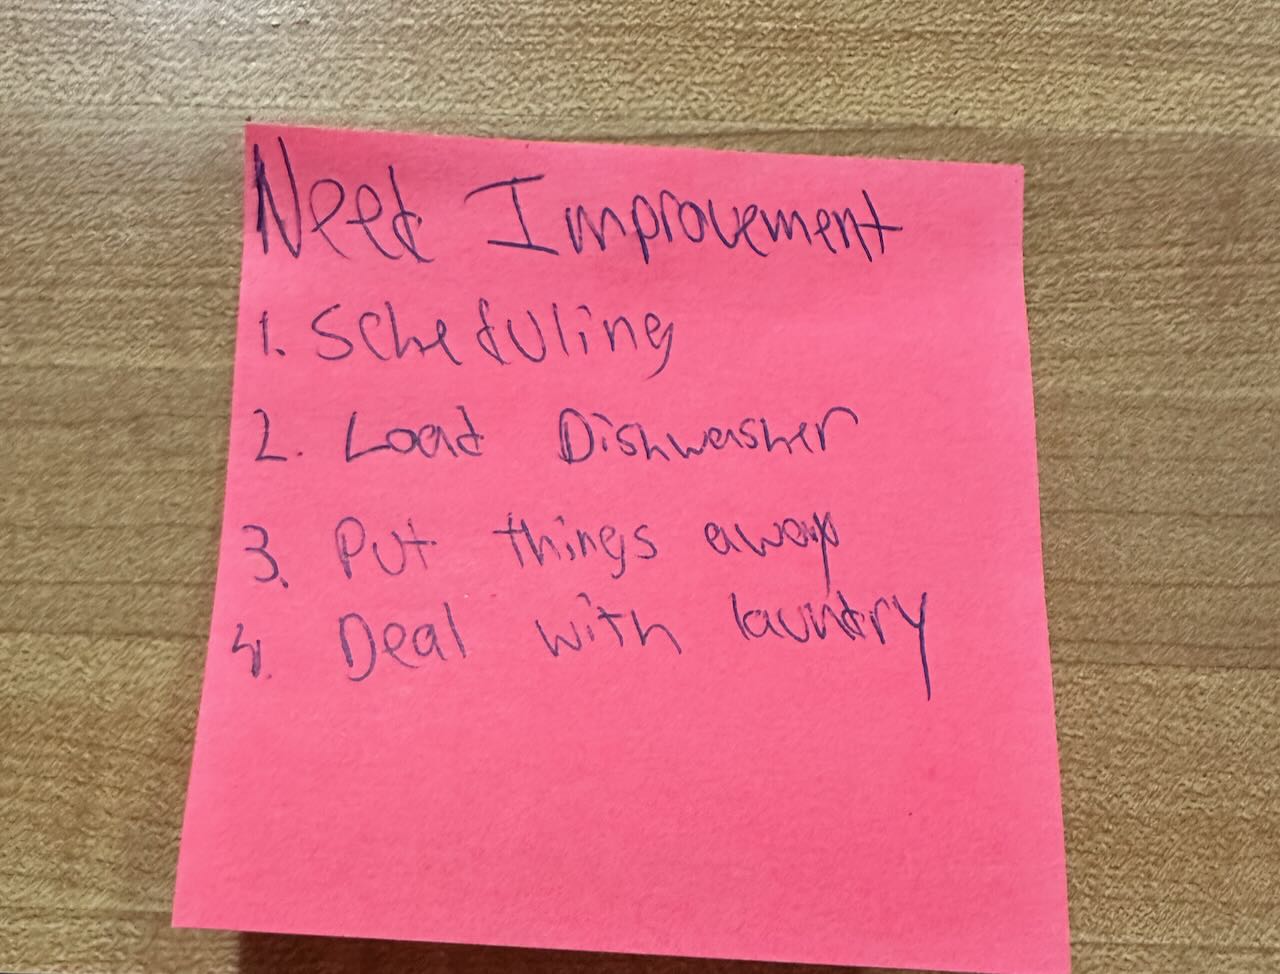 Need Improvement
1. Scheduling
2. Load Dishwasher
3. Put things away
4. Deal with laundry